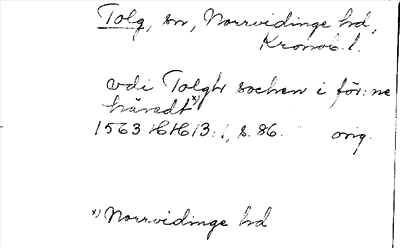 Tolg, sn, Norrvidinge hd,
Kronob. l.
vdi Tolgh sochen i för:ne
häradt x)
1563 HH 13:1, s. 86. orig.
x) Norrvidinge hd